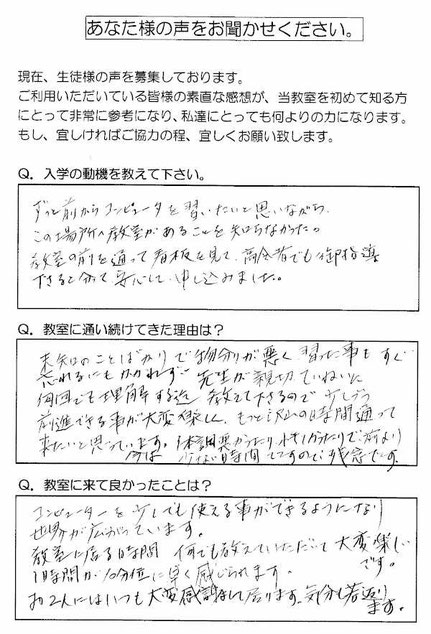 あなた様の声をお聞かせください。
現在、生徒様の声を募集しております。
ご利用いただいている皆様の素直な感想が、当教室を初めて知る方
にとって非常に参考になり、私達にとっても何よりの力になります。
もし、宜しければご協力の程、宜しくお願い致します。
Q．入学の動機を教えて下さい。
ずっと前からコンピュータを習いたいと思いながら、
この場所へ教室があることを知らなかった。
教室の前を通って看板を見て、高令者でも御指導
できると分って安心して、申し込みました。
Q．教室に通い続けてきた理由は？
未知のことばかりで物分りが悪く習った事もすぐ
忘れるにもかかわれず 先生が親切ていねいに
何回でも理解する迄 教えて下さるので少しづつ
前進できる事が大変楽しく、もっと沢山の時間通って
来たいと思っています。今は 体調悪かったり
少ない時間ですので残念です。
Q．教室に来て良かったことは？
コンピューターを少しでも使える事ができるようになり
世界が広がっています。
教室に居る時間 何でも教えていただいて大変楽しいです。
1時間が10分位に早く感じられます。
お2人にはいつも大変感謝して居ります。気分も若返ります。